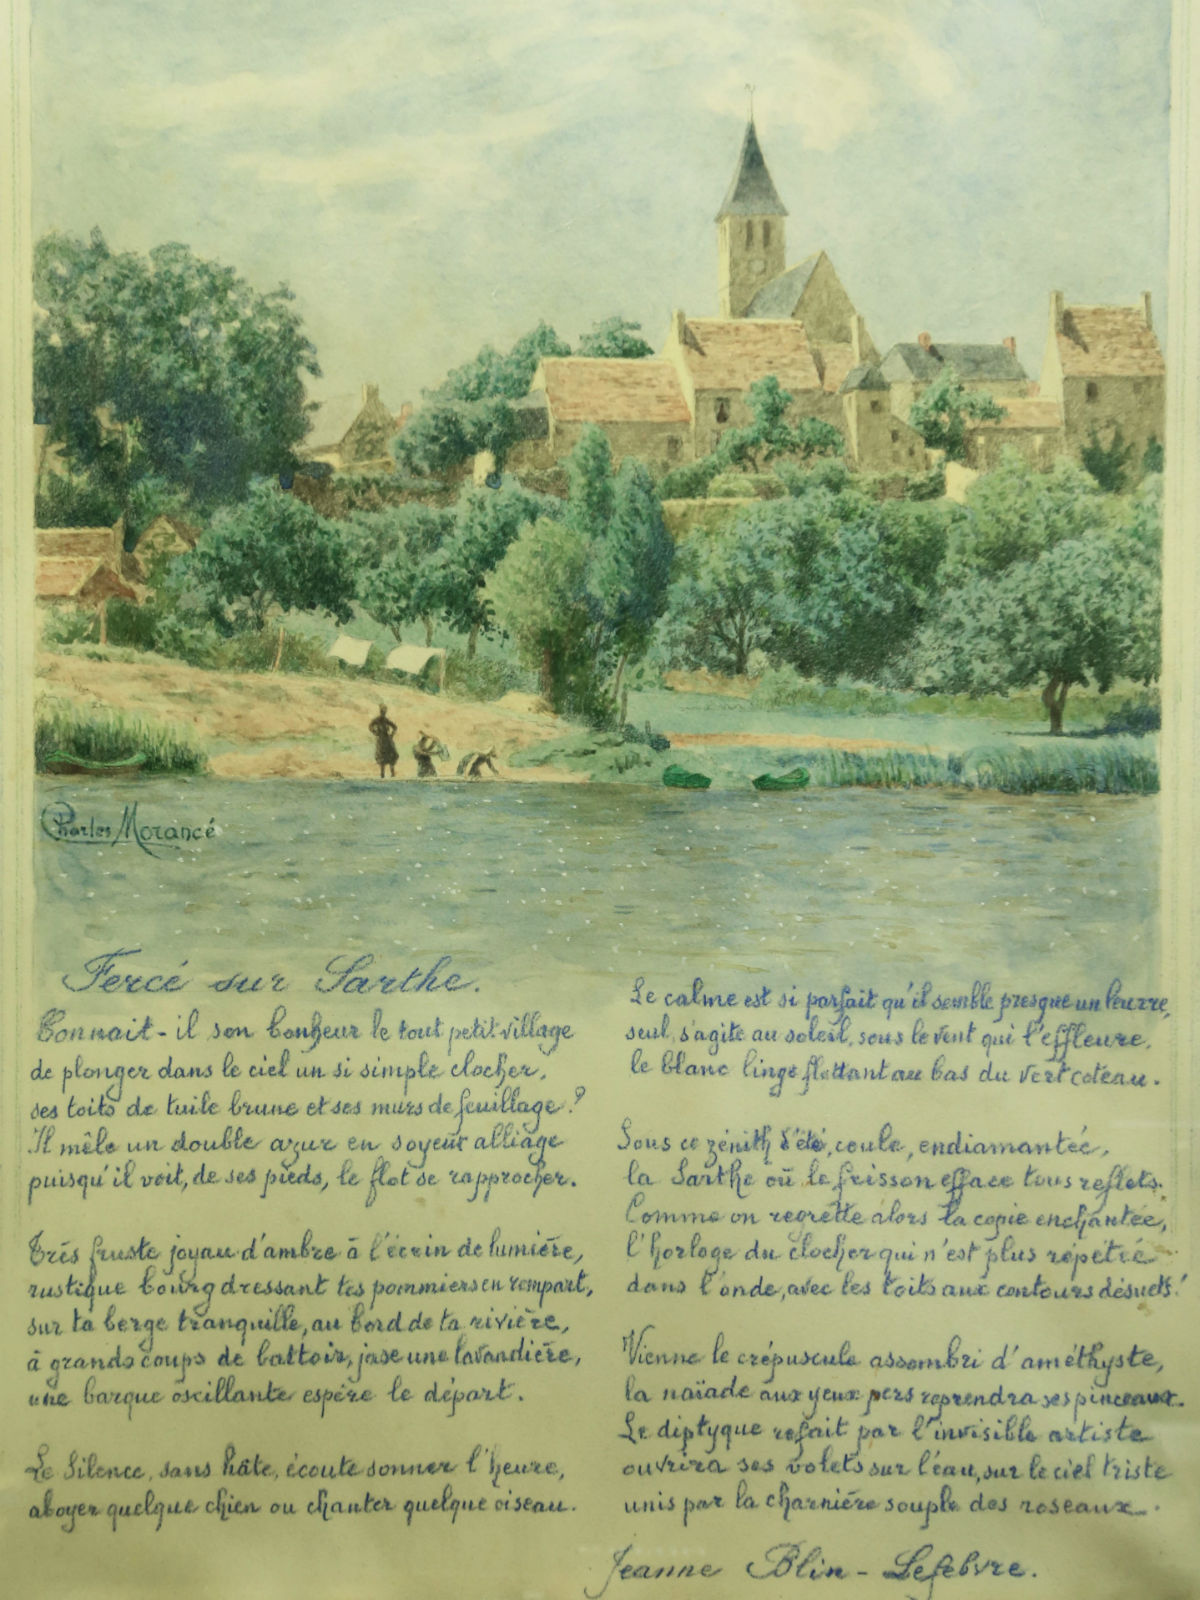 Charles Morancé
Fercé sur Sarthe.
Connait-il son bonheur le tout petit village
de plonger dans le ciel un si simple clocher,
ses toits de tuile brune et ses murs de feuillage ?
Il mêle un double azur en soyeux alliage
puisqu'il voit, de ses pieds, le flot se rapprocher.
Très fruste joyau d'ambre à l'écrin de lumière,
rustique bourg dressant tes pommiers en rempart,
sur ta berge tranquille, au bord de ta rivière,
à grands coups de battoir, jase une lavandière,
une barque oscillante espère le départ.
Le Silence, sans hâte, écoute sonner l'heure,
aboyer quelque chien ou chanter quelque oiseau.
Le calme est si parfait qu'il semble presque un leurre,
seul, s'agite au soleil, sous le vent qui l'effleure,
le blanc linge flottant au bas du vert coteau.
Sous ce zénith d'été, coule, endiamantée,
la Sarthe où le frisson efface tous reflets.
Comme on regrette alors la copie enchantée,
l'horloge du clocher qui n'est plus répétée
dans l'onde, avec les toits aux contours désuets !
Vienne le crépuscule assombri d'améthyste,
la naïade aux yeux pers reprendra ses pinceaux.
Le diptyque refait par l'invisible artiste
ouvrira ses volets sur l'eau, sur le ciel triste
unis par la charnière souple des roseaux...
Jeanne Blin-Lefebvre.